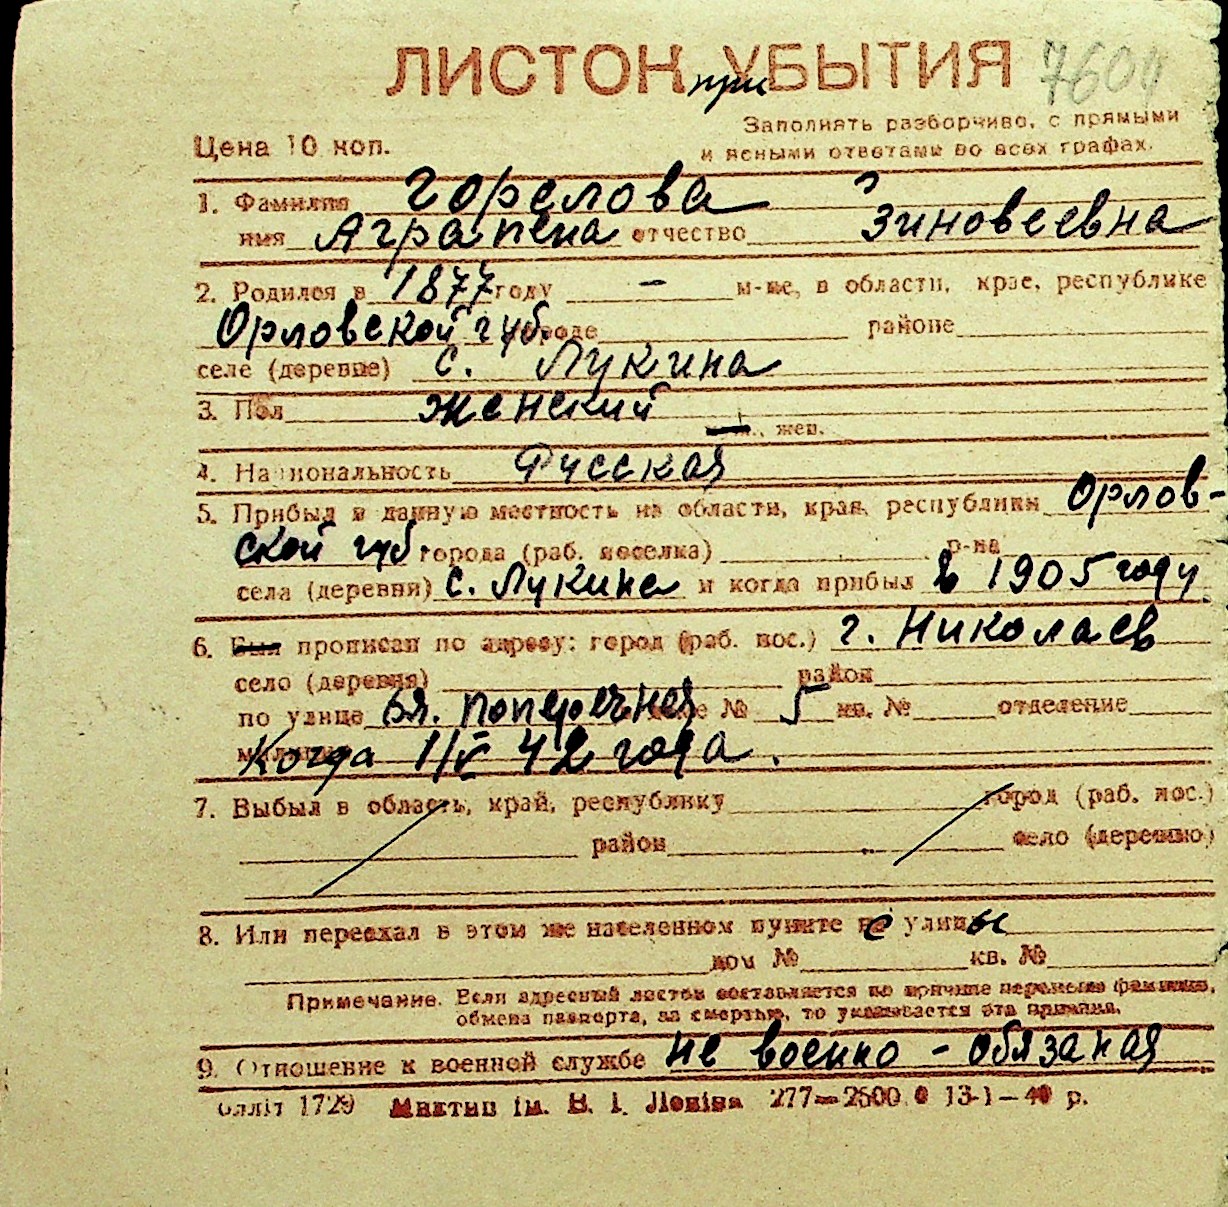 ЛИСТОК при УБЫТИЯ 7604
Заполнять разборчиво, с прямыми
Цена 10 коп. и ясными ответами во всех графах.
1. Фамилия Горелова
имя Аграпена отчество Зиновеевна
2. Родился в 1877 году – м-це, в области, крае, республике
Орловской губ. городе районе
селе (деревне) с. Лукина
3. Пол женский
жен.
4. Национальность Русская
5. Прибыл в данную местность из области, края, республики Орлов-
ской губ. города (раб. поселка) р-на
села (деревни) с. Лукине и когда прибыл в 1905 году
6. Был прописан по адресу: город (раб. пос.) г. Николаев
село (деревня) район
по улице Бл. Поперечная доме № 5 кв. № отделение
милиции Когда 1/V 42 года.
7. Выбыл в область, край, республику город (раб. пос.)
район село (деревню)
8. Или переехал в этом же населенном пункте с улицы
дом № кв. №
Примечание. Если адресный листок составляется по причине перемены фамилии,
обмена паспорта, за смертью, то указывается эта причина.
9. Отношение к военной службе не военно - обязаная
облліт 1729 Миктип ім. В. І. Леніна 277—2500 13-1—40 р.